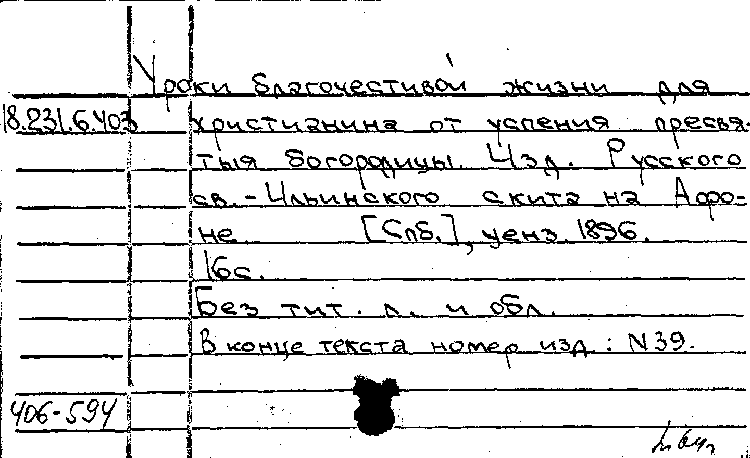 Уроки благочестивой жизни для
18.231.6.403 христианина от успения пресвя-
тыя богородицы. Изд. Русского
св.-Ильинского скита на Афо-
не [Спб.], ценз. 1896.
16с.
Без тит. л. и обл.
В конце текста номер изд.: N39.
406-594